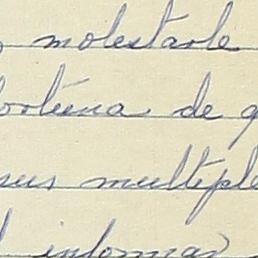 molestarle
fortuna de
sus multiple
informar